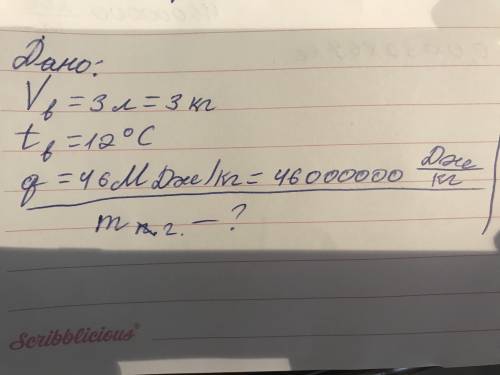 Дано:
Vв = 3 л = 3 кг
tв = 12°C
q = 46 МДж/кг = 46000000 Дж/кг
m п.г. – ?
Scribblicious